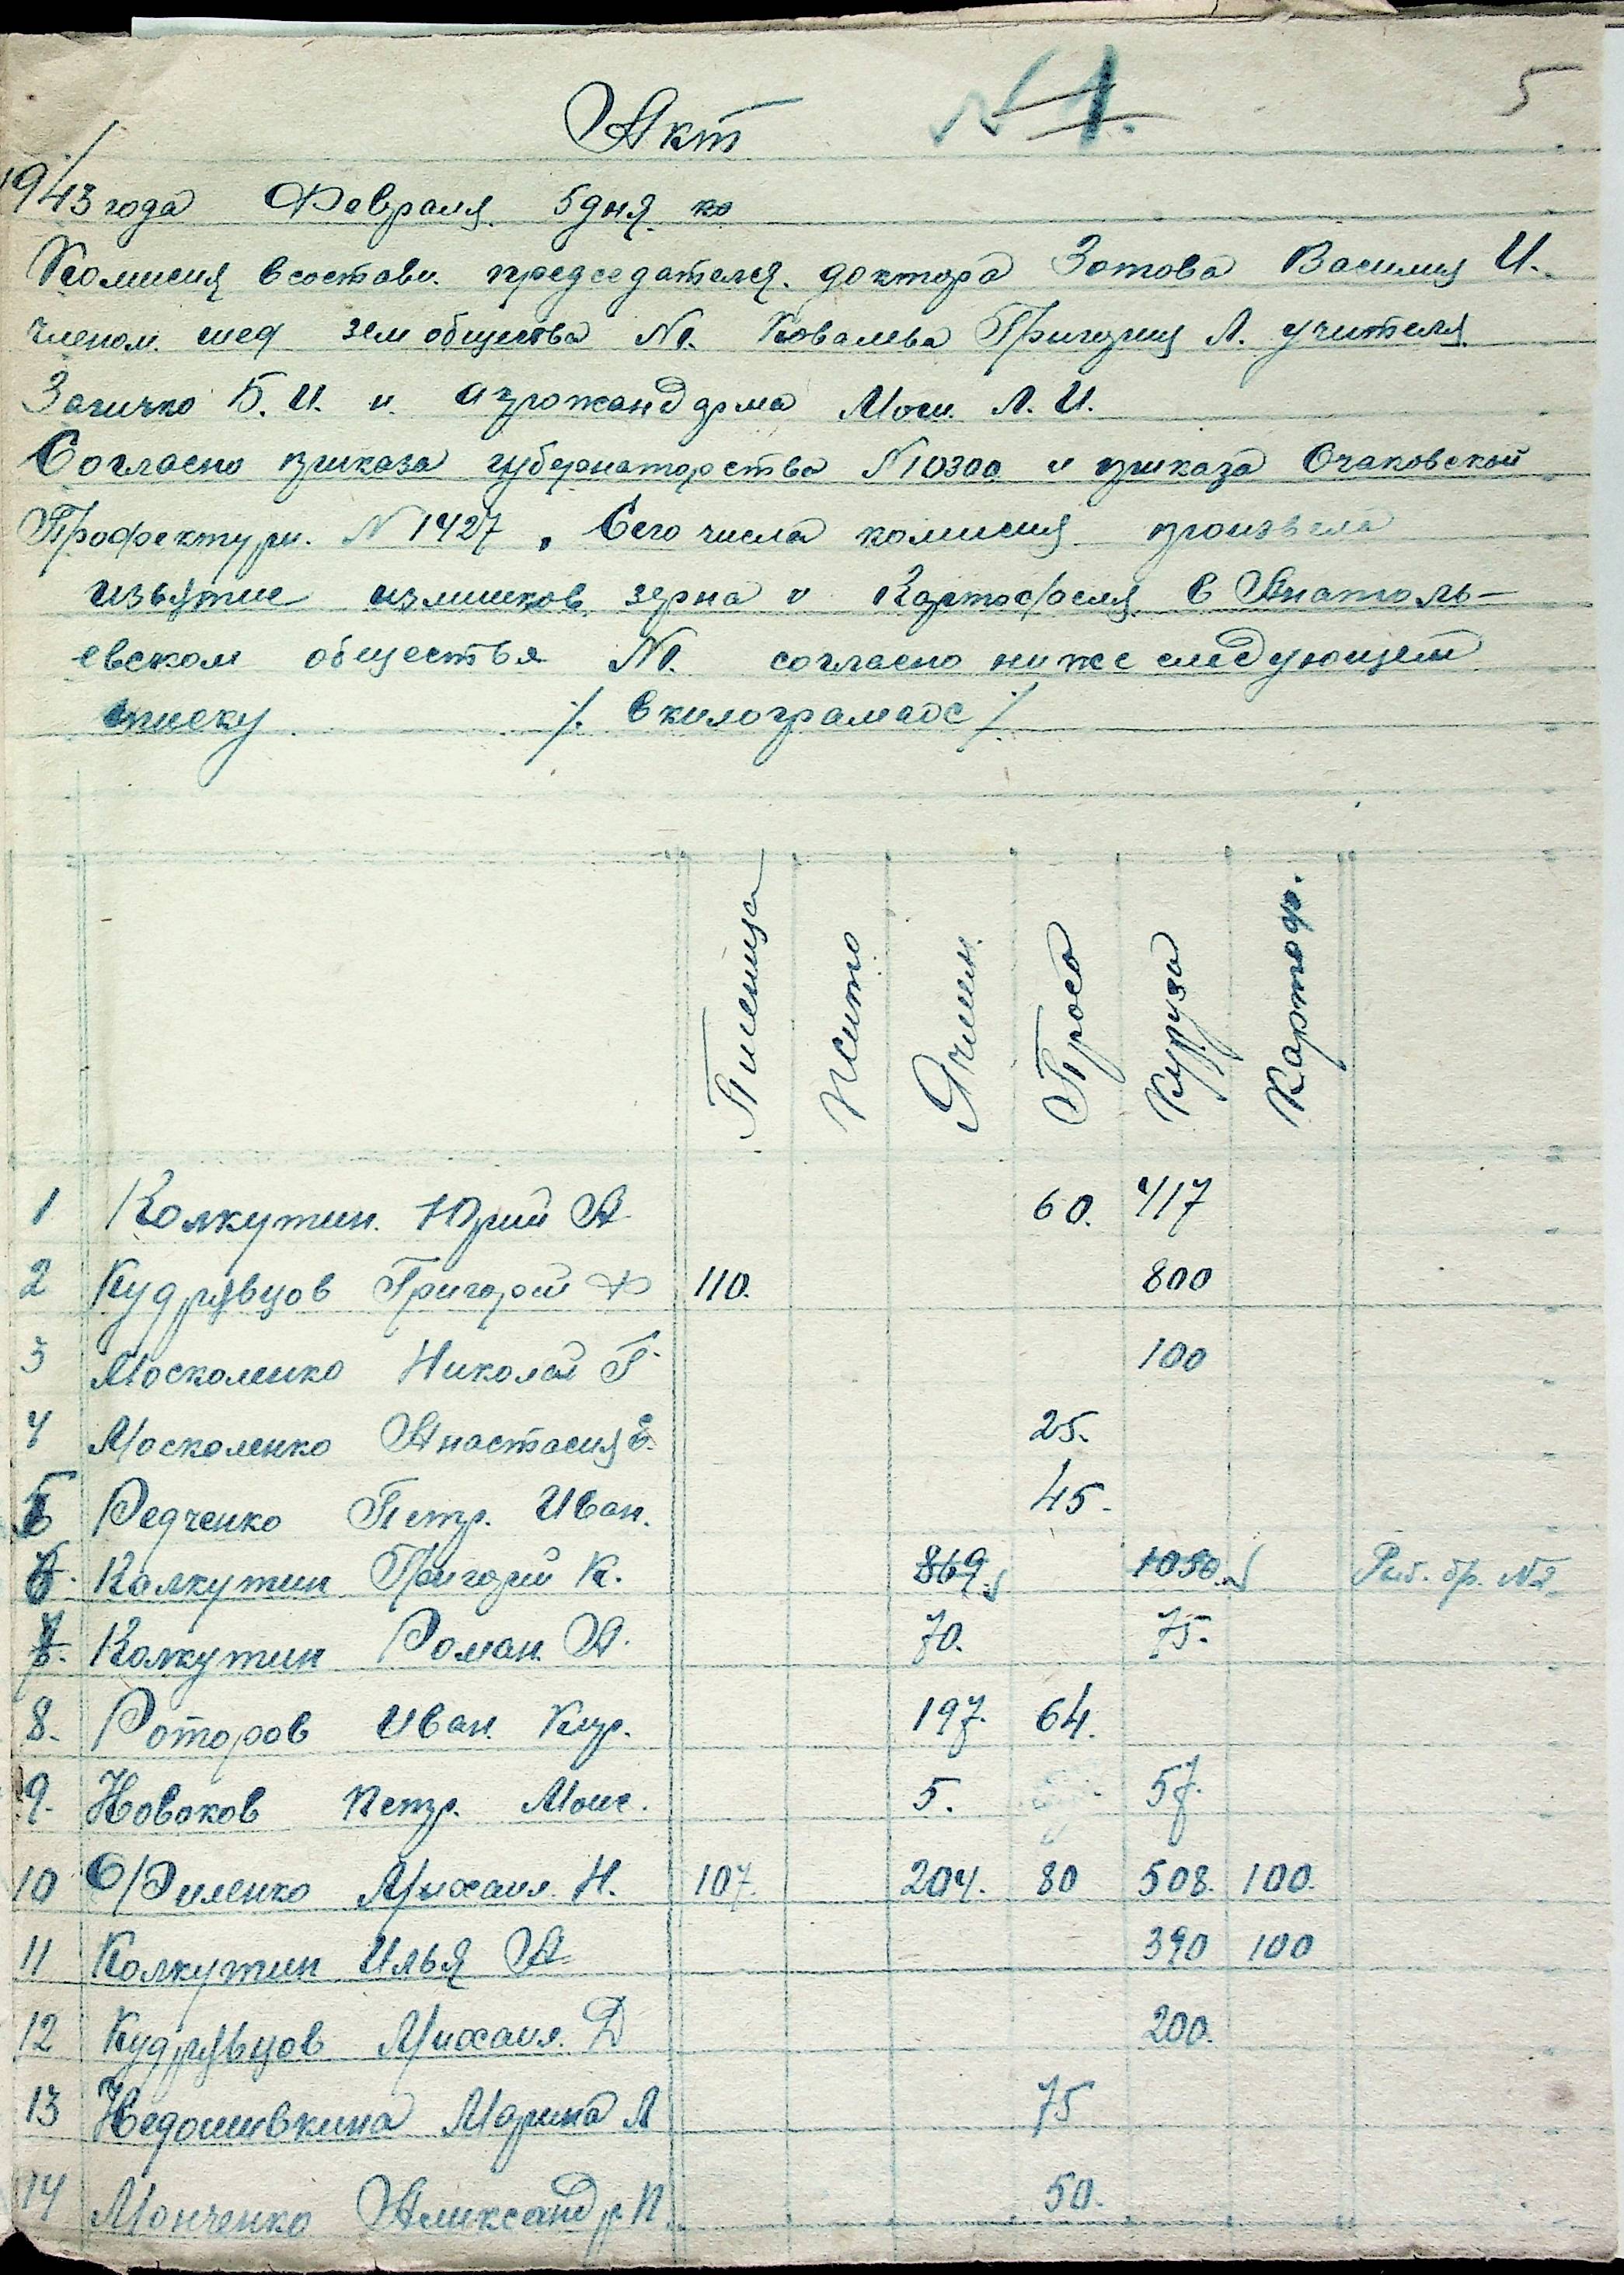 Акт № 1. 5
1943 года Февраля 5 дня ко
Комисия в состави председателя доктора Зотова Василия И.
членом шеф зем общества №1. Ковалева Григория Л. учителя
Заичко Б. И. и агрожандарма Мош Л. И.
Согласно приказа губернаторства №10300 и приказа Очаковской
Профектури. №1427, Сего числа комисия произвела
изьятие излишков зерна и Картофеля в Анатоль-
евском обществя №1. согласно ниже следующем
списку /. в килограмах ./
Пшеница Жито Ячмен. Просо Куруза Картоф.
1 Колкутин Юрий А. 60. 417
2 Кудрявцов Григорий Ф 110. 800
3 Москаленко Николай Г. 100
4 Москаленко Анастасия Е. 25.
5 Редченко Петр. Иван. 45.
6. Калкутин Григорий К. 869. 1050. Риб. бр. №2
7. Колкутин Роман А. 70. 75.
8. Роторов Иван Кир. 197. 64.
9. Новоков Петр. Моис. 5. 57.
10 Михаил Н. 107. 204. 80 508. 100.
11 Колкутин Илья А. 390 100
12 Кудрявцов Михаил. Д 200.
13 Недошивкина Марина Л 75
14 Монченко Александр П. 50.